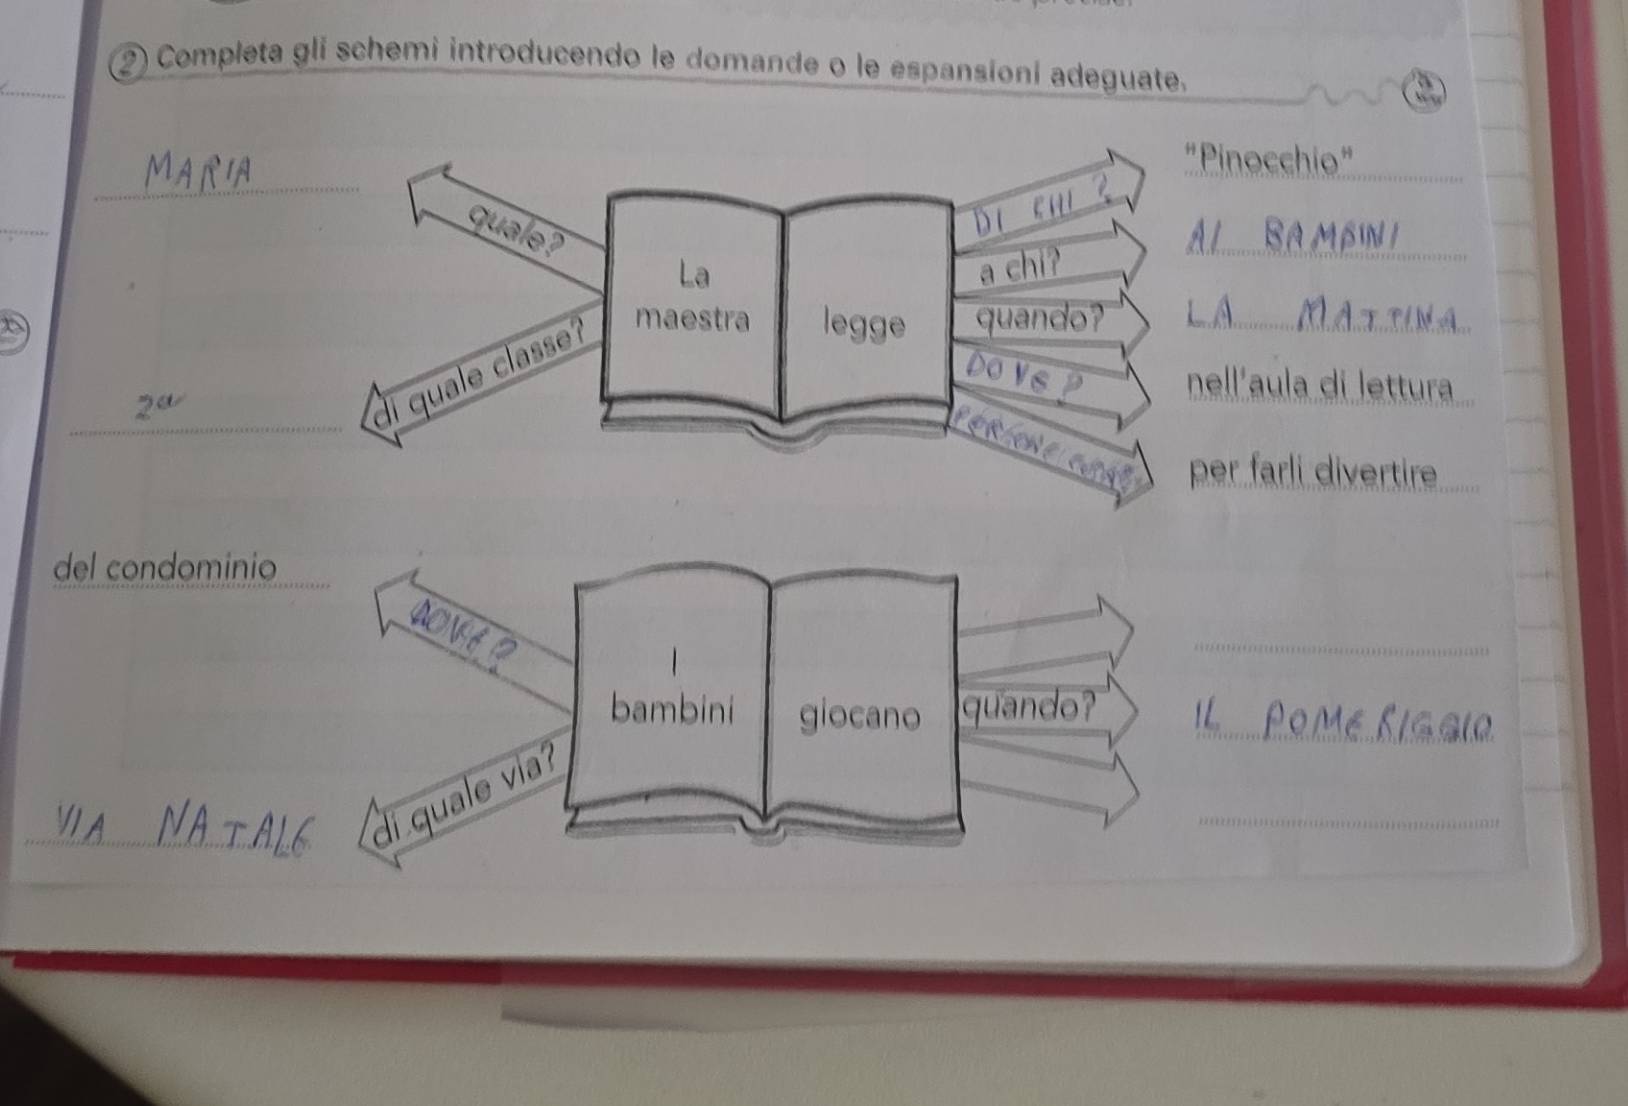 2 Completa gli schemi introducendo le domande o le espansioni adeguate.
MARIA
quale?
di quale classe?
2a
La
maestra
legge
DI CHI ?
a chi?
quando?
DOVE ?
"Pinocchio"
AI BAMBINI
LA MATTINA
nell'aula di lettura
per farli divertire
del condominio
DOVE ?
di quale via?
VIA NATALE
I
bambini
giocano
quando?
IL POMERIGGIO